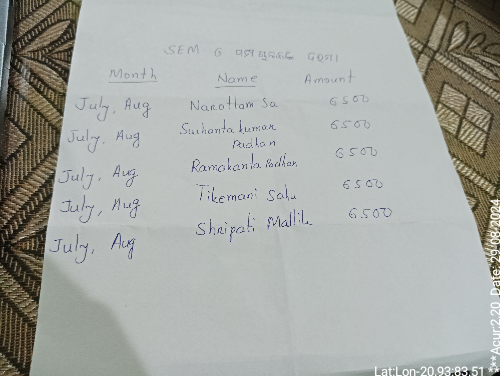 SEM G
Month Name Amount
July, Aug Narottam Sa 6500
July, Aug Sushanta kumar 6500
Padhan
July, Aug Ramakanta Padhan 6500
July, Aug Tikemani Sahu 6500
July, Aug Shripati Mallik 6500
Lat:Lon-20.93:83.51
Date: 29/08/2024